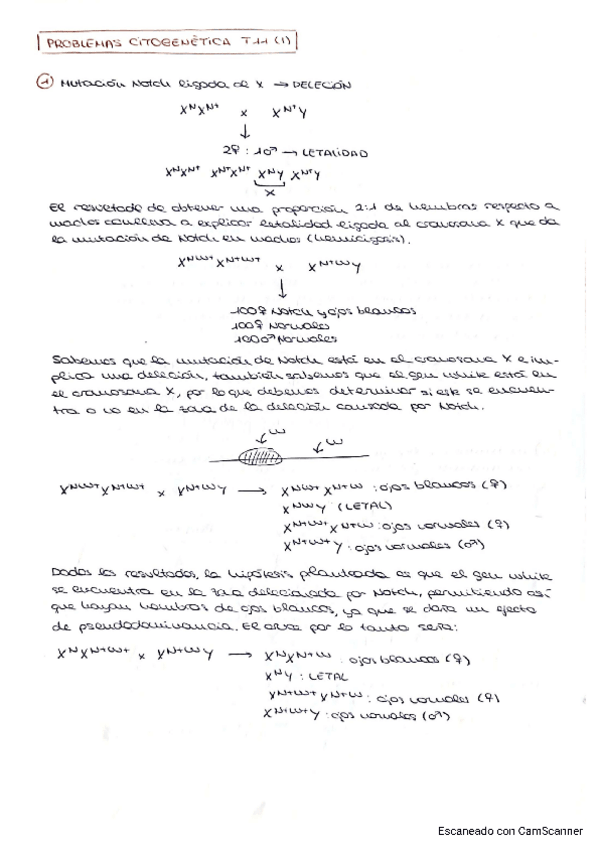 PROBLEMAS CITOGENÉTICA T11 (I)
① Mutación Notch ligada al X → DELECIÓN
XᴺXᴺ⁺ x Xᴺ⁺Y
↓
2♀ : 1♂ → LETALIDAD
XᴺXᴺ⁺ Xᴺ⁺Xᴺ⁺ XᴺY Xᴺ⁺Y
X
El resultado de obtener una proporción 2:1 de hembras respecto a
machos conlleva a explicar letalidad ligada al cromosoma X que da
la mutación de Notch en machos (hemicigosis).
Xᴺʷ⁺Xᴺ⁺ʷ⁺ x Xᴺ⁺ʷY
↓
100♀ Notch y ojos blancos
100♀ Normales
100♂ Normales
Sabemos que la mutación de Notch está en el cromosoma X e im-
plica una deleción, también sabemos que el gen white está en
el cromosoma X, por lo que debemos determinar si este se encuen-
tra o no en la zona de la deleción causada por Notch.
w w
Xᴺʷ⁺Xᴺ⁺ʷ⁺ x Xᴺ⁺ʷY → Xᴺʷ⁺Xᴺ⁺ʷ : ojos blancos (♀)
XᴺʷY (LETAL)
Xᴺ⁺ʷ⁺Xᴺ⁺ʷ : ojos normales (♀)
Xᴺ⁺ʷ⁺Y : ojos normales (♂)
Dados los resultados, la hipótesis planteada es que el gen white
se encuentra en la zona delecionada por Notch, permitiendo así
que hayan hembras de ojos blancos, ya que se daría un efecto
de pseudodominancia. El cruce por lo tanto sería:
XᴺXᴺ⁺ʷ⁺ x Xᴺ⁺ʷY → XᴺXᴺ⁺ʷ : ojos blancos (♀)
XᴺY : LETAL
Xᴺ⁺ʷ⁺Xᴺ⁺ʷ : ojos normales (♀)
Xᴺ⁺ʷ⁺Y : ojos normales (♂)
Escaneado con CamScanner